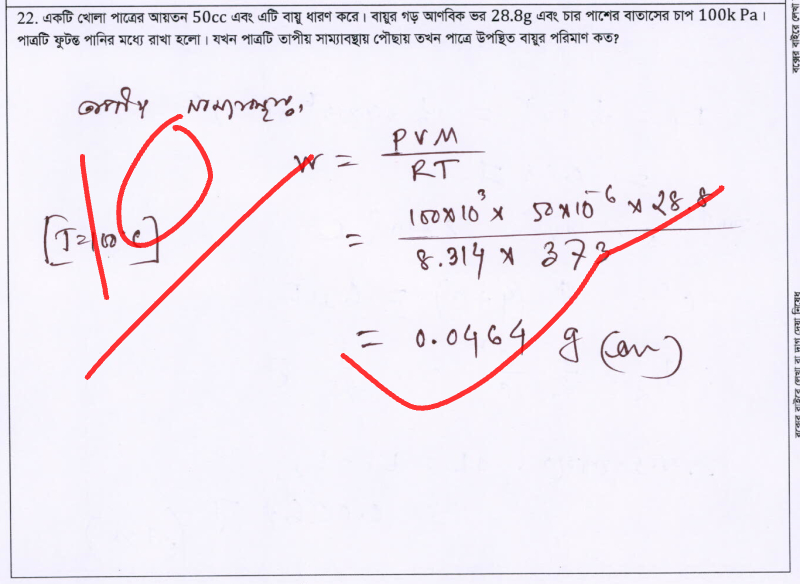 22. একটি খোলা পাত্রের আয়তন 50cc এবং এটি বায়ু ধারণ করে। বায়ুর গড় আণবিক ভর 28.8g এবং চার পাশের বাতাসের চাপ 100k Pa।
পাত্রটি ফুটন্ত পানির মধ্যে রাখা হলো। যখন পাত্রটি তাপীয় সাম্যাবস্থায় পৌছায় তখন পাত্রে উপস্থিত বায়ুর পরিমাণ কত?
তাপীয় সাম্যাবস্থায়,
W = PVM / RT
[T=100°C]
= 100×10³ × 50×10⁻⁶ × 28.8 / 8.314 × 373
= 0.0464 g (Ans)
10